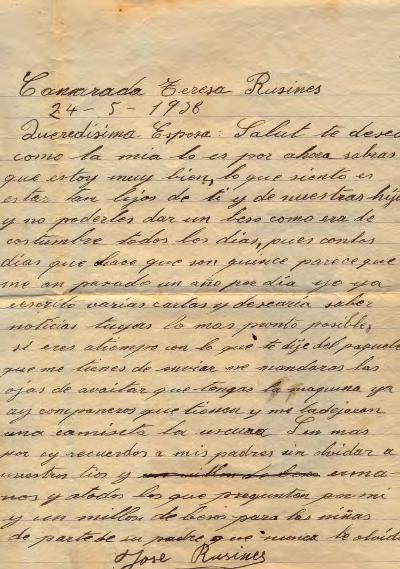 Camarada Teresa Rusines
24-5-1938
Queredisima Esposa: Salut te deseo
como la mia lo es por ahora sabras
que estoy muy bien, lo que siento es
estar tan lijos de ti y de nuestras hijas
y no poderles dar un beso como era de
costumbre todos los dias, pues contos
dias que hace que son quince parece que
me an pasado un año por dia yo ya
eescrito varias cartas y desearia saber
noticias tuyas lo mas pronto posible,
si eres atiempo con lo que te dije del paquete
que me tienes de enviar me mandaras las
ojas de afaitar que tengas la maquina ya
ay compañeros que tienen y me ladejaran
una camiseta la oscura Sin mas
por oy recuerdos a mis padres sin olvidar a
nuestros tios y erma-
nos y atodos los que pregunten por mi
y un millon de besos para las niñas
de parte de su padre que nunca te olvida
Jose Rusines